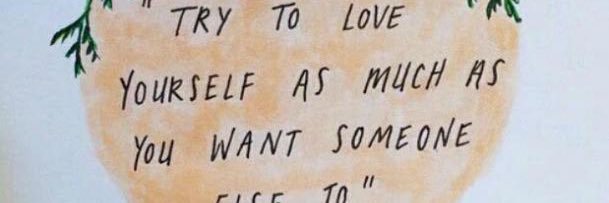 "TRY TO LOVE
YOURSELF AS MUCH AS
YOU WANT SOMEONE
ELSE TO"